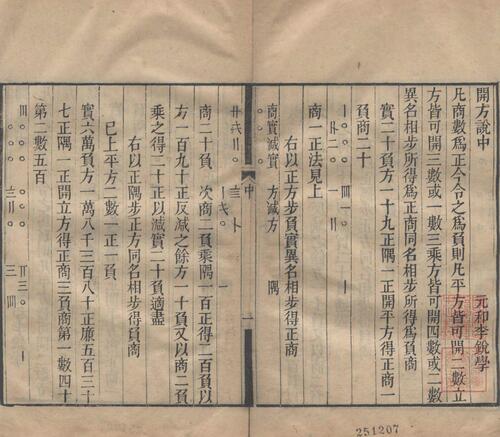 開方說中
元和李銳學
凡商數爲正今令之爲負則凡平方皆可開二數立
方皆可開三數或一數三乘方皆可開四數或二數
異名相步所得爲正商同名相步所得爲負商
實二十負方一十九正隅一正開平方得正商一
負商二十
商一正法見上
右以正方步負實異名相步得正商
商實減實
方減方
隅
中
一
商二十負
次商二負乘隅一百正得二百負以
方一百九十正反減之餘方一十負又以商二負
乘之得二十正以減實二十負適盡
右以正隅步正方同名相步得負商
已上平方二數一正一負
實六萬負方一萬八千三百八十正廉五百三十
七正隅一正開立方得正商三負商第一數四十
第二數五百
251207